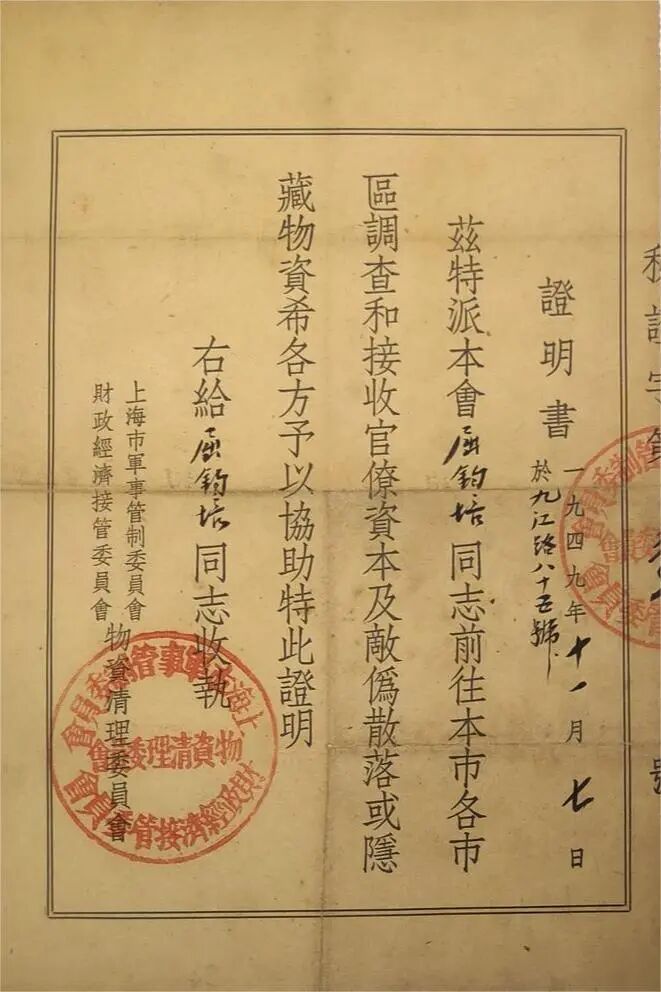 證明書
一九四九年十一月七日
於九江路八十五號
茲特派本會屈鈞培同志前往本市各市
區調查和接收官僚資本及敵偽散落或隱
藏物資希各方予以協助特此證明
右給屈鈞培同志收執
上海市軍事管制委員會
財政經濟接管委員會
物資清理委員會
上海市軍事管制委員會
財政經濟接管委員會
物資清理委員會